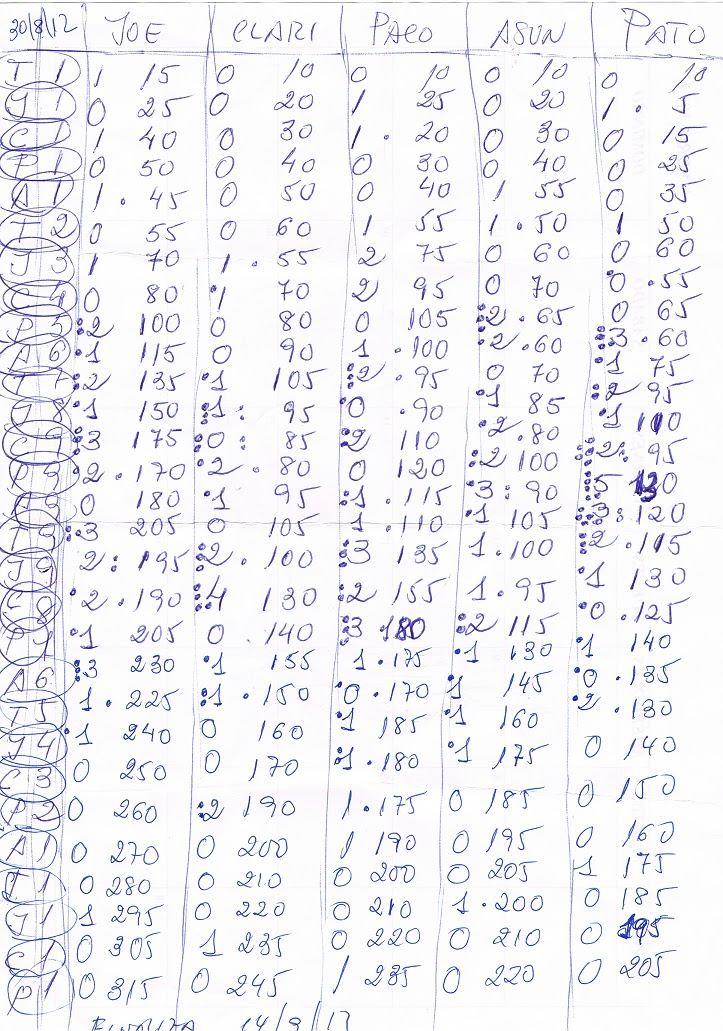 30/8/12 JOE CLARI PACO ASUN PATO
T 1 1 15 0 10 0 10 0 10 0 10
J 1 0 25 0 20 1 25 0 20 1 . 5
C 1 1 40 0 30 1 . 20 0 30 0 15
P 1 0 50 0 40 0 30 0 40 0 25
A 1 1 . 45 0 50 0 40 1 55 0 35
T 2 0 55 0 60 1 55 1 . 50 1 50
J 3 1 70 1 . 55 2 75 0 60 0 60
C 4 0 80 1 70 2 95 0 70 0 . 55
P 5 2 100 0 80 0 105 2 . 65 0 65
A 6 1 115 0 90 1 . 100 2 . 60 3 . 60
T 7 2 135 1 105 2 . 95 0 70 1 75
J 8 1 150 1 : 95 0 . 90 1 85 2 95
C 9 3 175 0 : 85 2 110 2 . 80 1 110
P 9 2 . 170 2 . 80 0 120 2 100 2 : 95
A 9 0 180 1 95 1 . 115 3 : 90 5 130
T 9 3 205 0 105 1 . 110 1 105 3 : 120
J 9 2 : 195 2 . 100 3 135 1 . 100 2 . 115
C 8 2 . 190 4 130 2 155 1 . 95 1 130
P 7 1 205 0 . 140 3 180 2 115 0 . 125
A 6 3 230 1 155 1 . 175 1 130 1 140
T 5 1 . 225 1 . 150 0 . 170 1 145 0 . 135
J 4 1 240 0 160 1 185 1 160 2 . 130
C 3 0 250 0 170 1 . 180 1 175 0 140
P 2 0 260 2 190 1 . 175 0 185 0 150
A 1 0 270 0 200 1 190 0 195 0 160
T 1 0 280 0 210 0 200 0 205 1 175
J 1 1 295 0 220 0 210 1 . 200 0 185
C 1 0 305 1 235 0 220 0 210 0 195
P 1 0 315 0 245 1 235 0 220 0 205